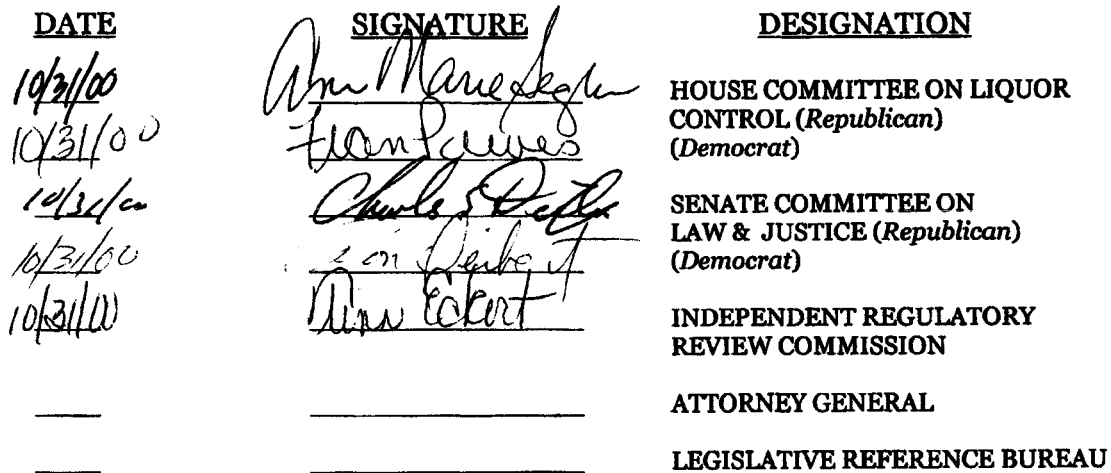 DATE SIGNATURE DESIGNATION
10/31/00 Ann Marie HOUSE COMMITTEE ON LIQUOR
CONTROL (Republican)
10/31/00 Fran
(Democrat)
10/31/00 Charles S SENATE COMMITTEE ON
LAW & JUSTICE (Republican)
10/31/00
(Democrat)
10/31/00 Ann Eckert INDEPENDENT REGULATORY
REVIEW COMMISSION
ATTORNEY GENERAL
LEGISLATIVE REFERENCE BUREAU